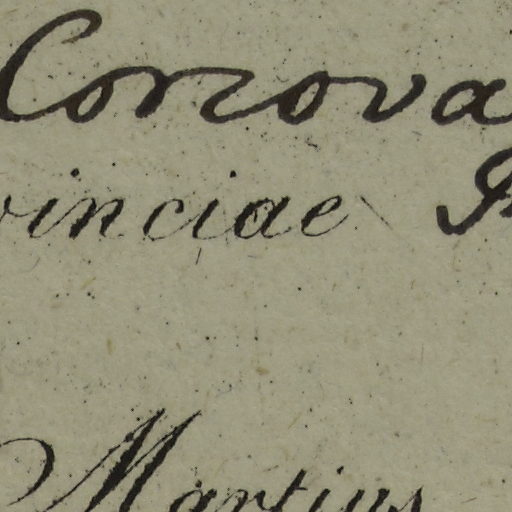 Corcova
vinciae
Martius